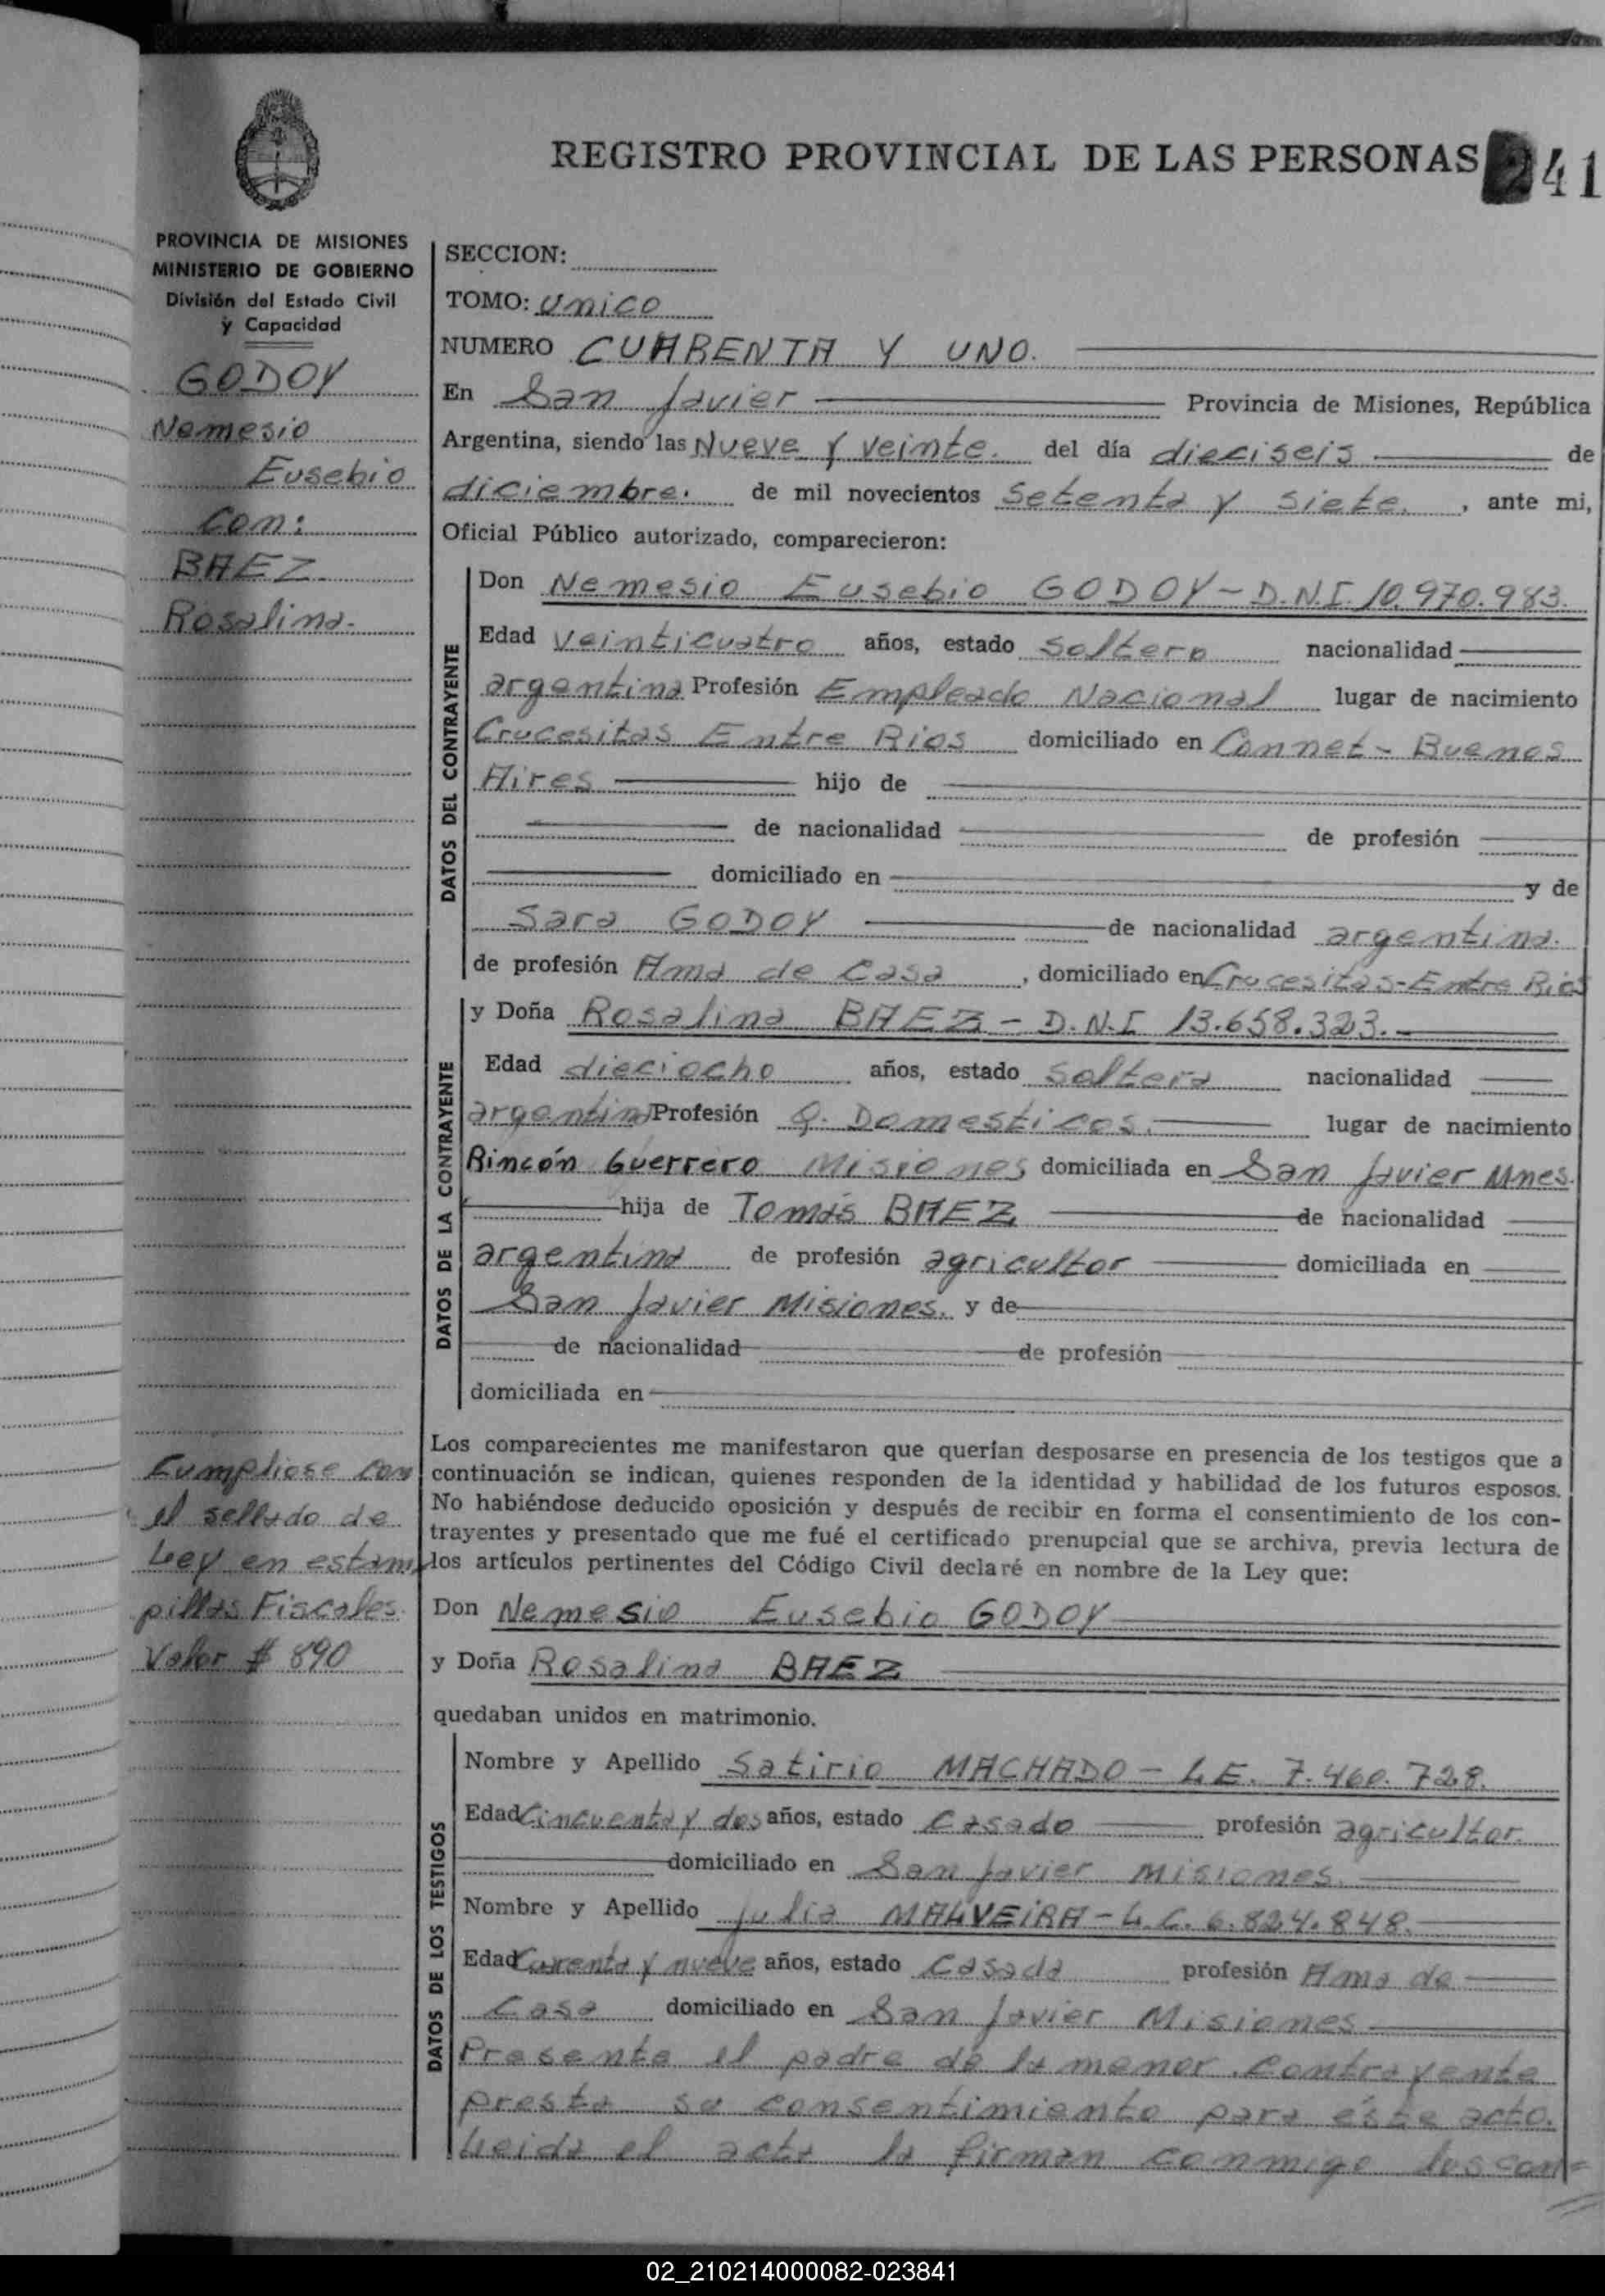 REGISTRO PROVINCIAL DE LAS PERSONAS 241
PROVINCIA DE MISIONES
MINISTERIO DE GOBIERNO
División del Estado Civil
y Capacidad
GODOY
Nemesio
Eusebio
Con:
BAEZ
Rosalina.
Cumpliose con
el sellado de
Ley en estam
pillas Fiscales.
Valor $ 890
SECCION:
TOMO: Unico
NUMERO CUARENTA Y UNO.
En San Javier Provincia de Misiones, República
Argentina, siendo las Nueve y veinte. del día dieciseis de
diciembre. de mil novecientos setenta y siete. , ante mi,
Oficial Público autorizado, comparecieron:
DATOS DEL CONTRAYENTE
Don Nemesio Eusebio GODOY - D.N.I. 10.970.983.
Edad veinticuatro años, estado soltero nacionalidad
argentina Profesión Empleado Nacional lugar de nacimiento
Crucesitas Entre Rios domiciliado en Connet - Buenos
Aires hijo de
de nacionalidad de profesión
domiciliado en y de
Sara GODOY de nacionalidad argentina.
de profesión Ama de Casa , domiciliado en Crucesitas-Entre Rios
DATOS DE LA CONTRAYENTE
y Doña Rosalina BAEZ - D.N.I 13.658.323.
Edad dieciocho años, estado soltera nacionalidad
argentina Profesión Q. Domesticos. lugar de nacimiento
Rincón Guerrero Misiones domiciliada en San Javier Mnes.
hija de Tomás BAEZ de nacionalidad
argentina de profesión agricultor domiciliada en
San Javier Misiones. y de
de nacionalidad de profesión
domiciliada en
Los comparecientes me manifestaron que querían desposarse en presencia de los testigos que a
continuación se indican, quienes responden de la identidad y habilidad de los futuros esposos.
No habiéndose deducido oposición y después de recibir en forma el consentimiento de los con-
trayentes y presentado que me fué el certificado prenupcial que se archiva, previa lectura de
los artículos pertinentes del Código Civil declaré en nombre de la Ley que:
Don Nemesio Eusebio GODOY
y Doña Rosalina BAEZ
quedaban unidos en matrimonio.
DATOS DE LOS TESTIGOS
Nombre y Apellido Satirio MACHADO - L.E. 7.460.728.
Edad Cincuenta y dos años, estado Casado profesión agricultor.
domiciliado en San Javier Misiones.
Nombre y Apellido Julia MALVEIRA - L.C. 6.824.848.
Edad Curenta y nueve años, estado Casada profesión Ama de
Casa domiciliado en San Javier Misiones
Presente el padre de la menor contrayente
presta su consentimiento para éste acto.
Leida el acta la firman conmigo los con=
02_210214000082-023841